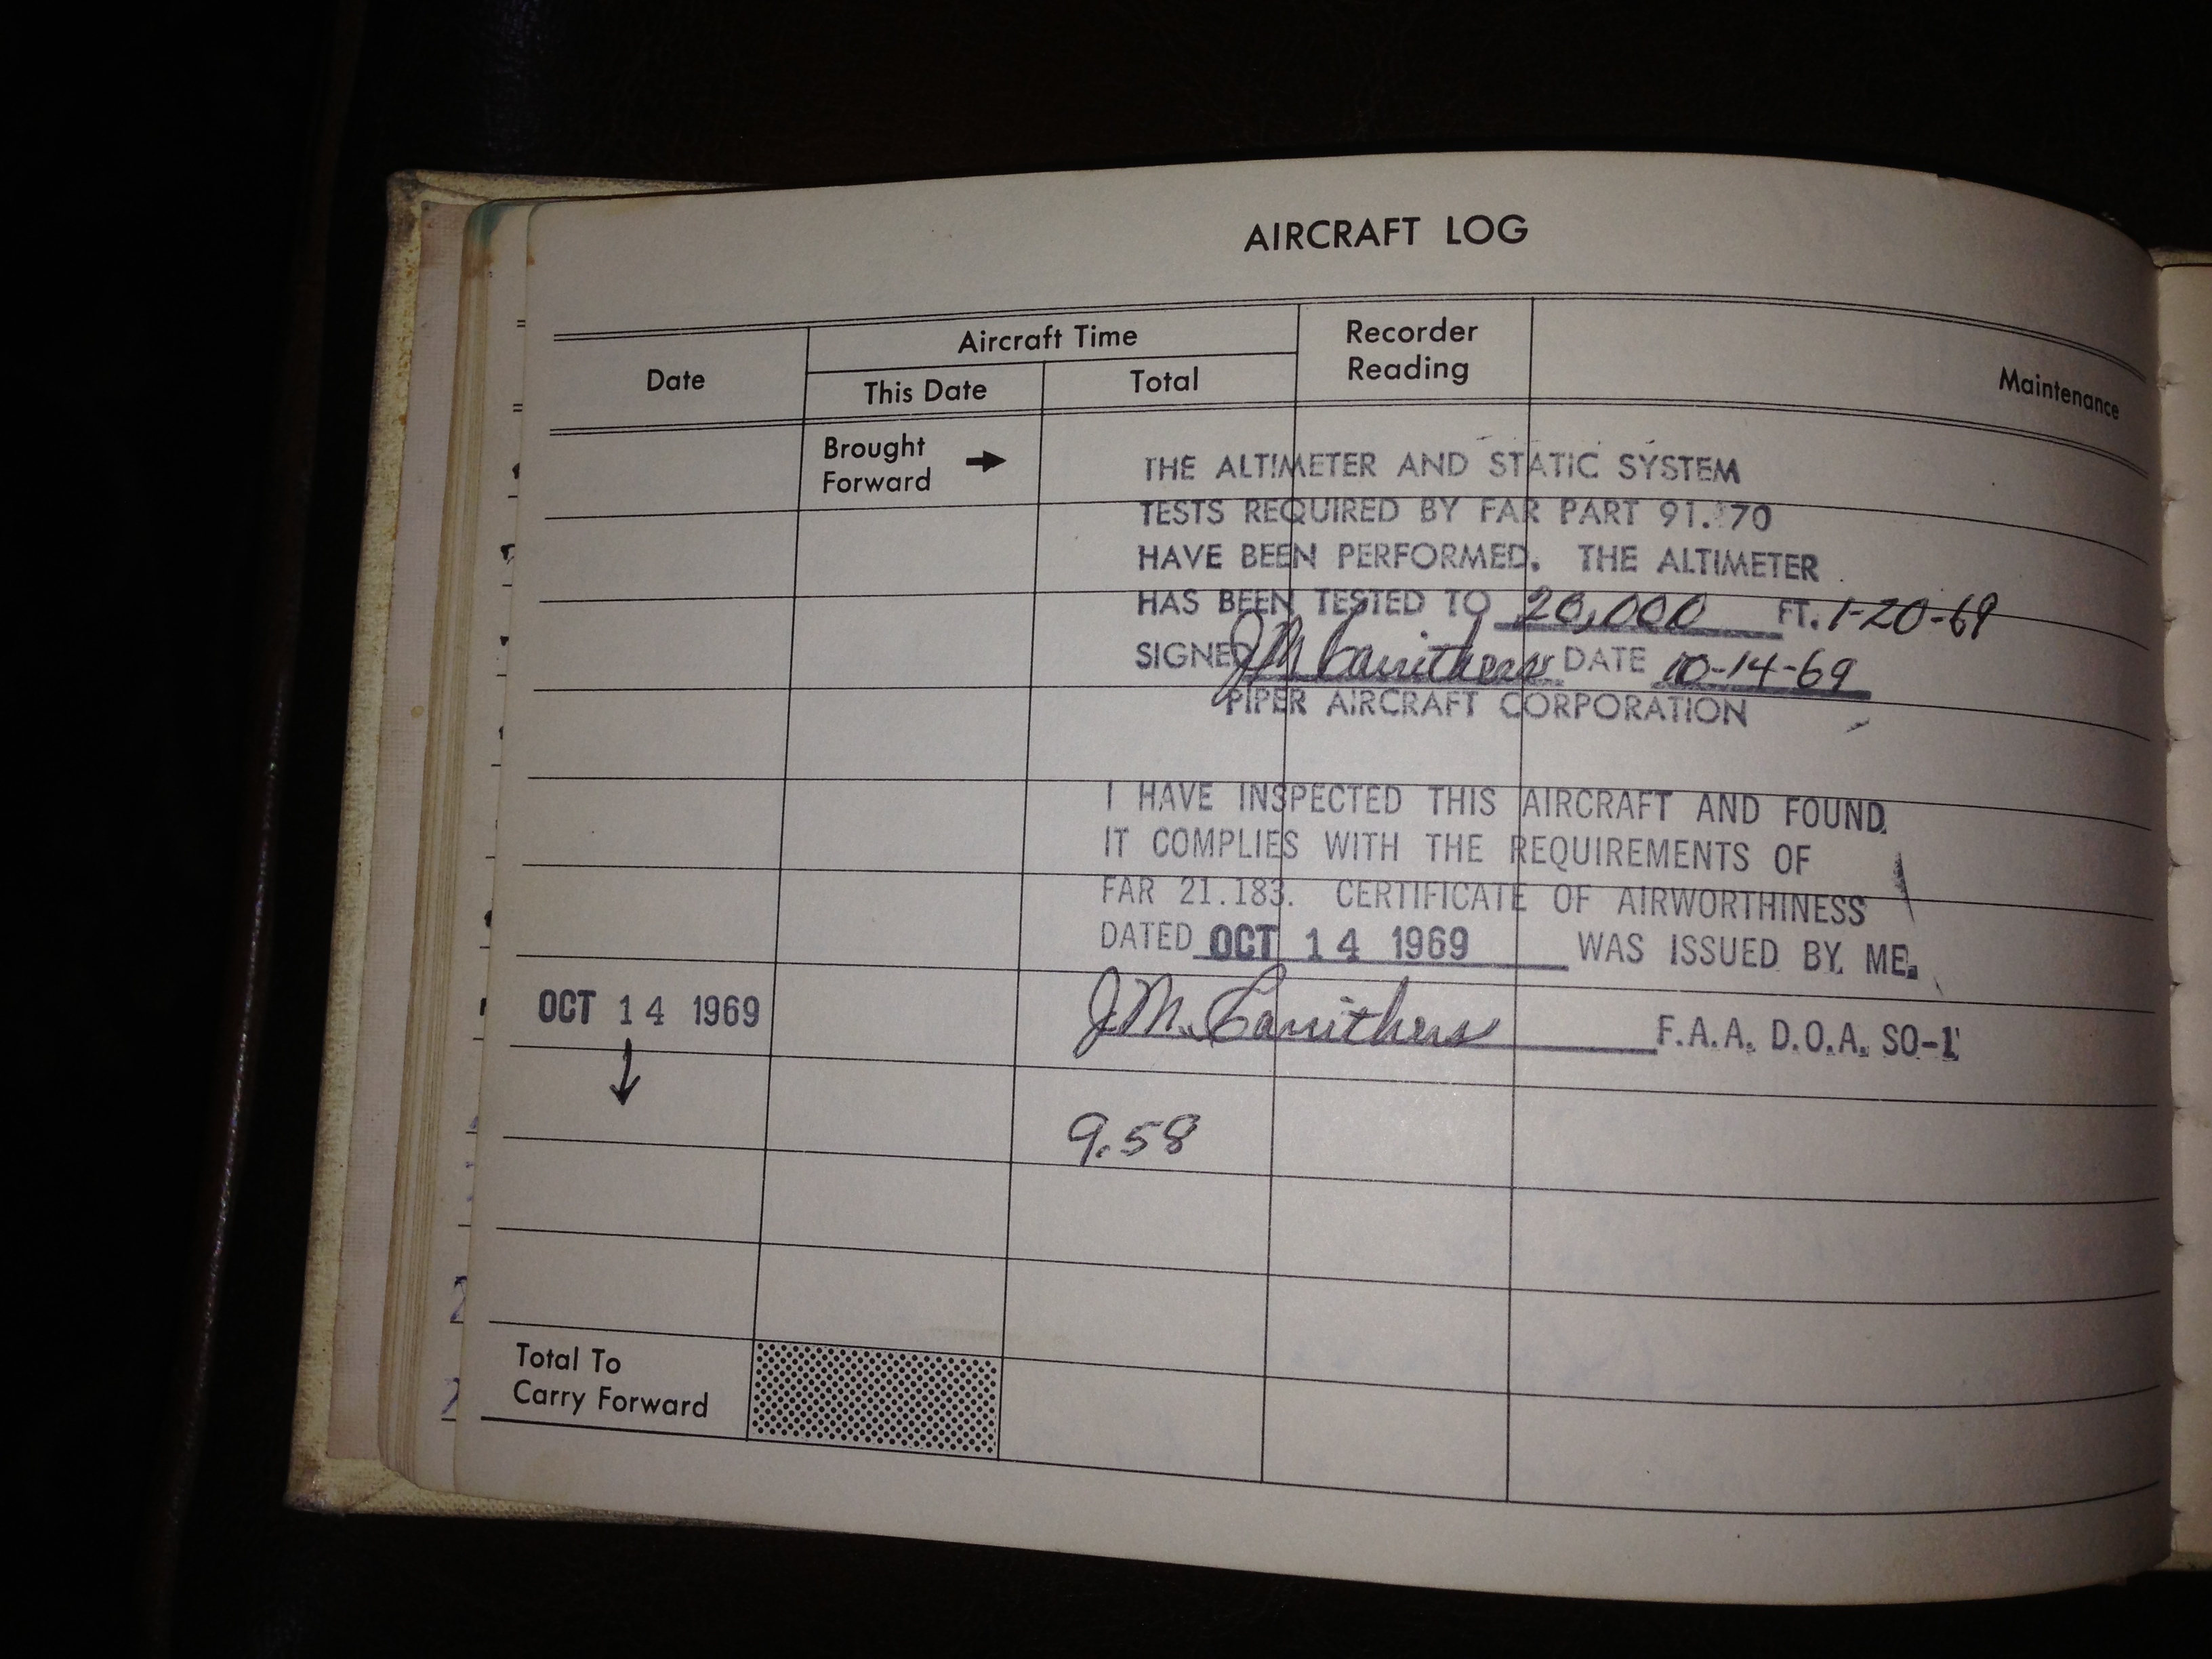 AIRCRAFT LOG
Date
Aircraft Time
This Date
Total
Recorder
Reading
Maintenance
Brought
Forward
THE ALTIMETER AND STATIC SYSTEM
TESTS REQUIRED BY FAR PART 91.170
HAVE BEEN PERFORMED. THE ALTIMETER
HAS BEEN TESTED TO 20,000 FT. 1-20-69
SIGNED JM Carrithers DATE 10-14-69
PIPER AIRCRAFT CORPORATION
I HAVE INSPECTED THIS AIRCRAFT AND FOUND
IT COMPLIES WITH THE REQUIREMENTS OF
FAR 21.183. CERTIFICATE OF AIRWORTHINESS
DATED OCT 14 1969 WAS ISSUED BY ME.
OCT 14 1969 J.M. Carrithers F.A.A. D.O.A. SO-1
9.58
Total To
Carry Forward